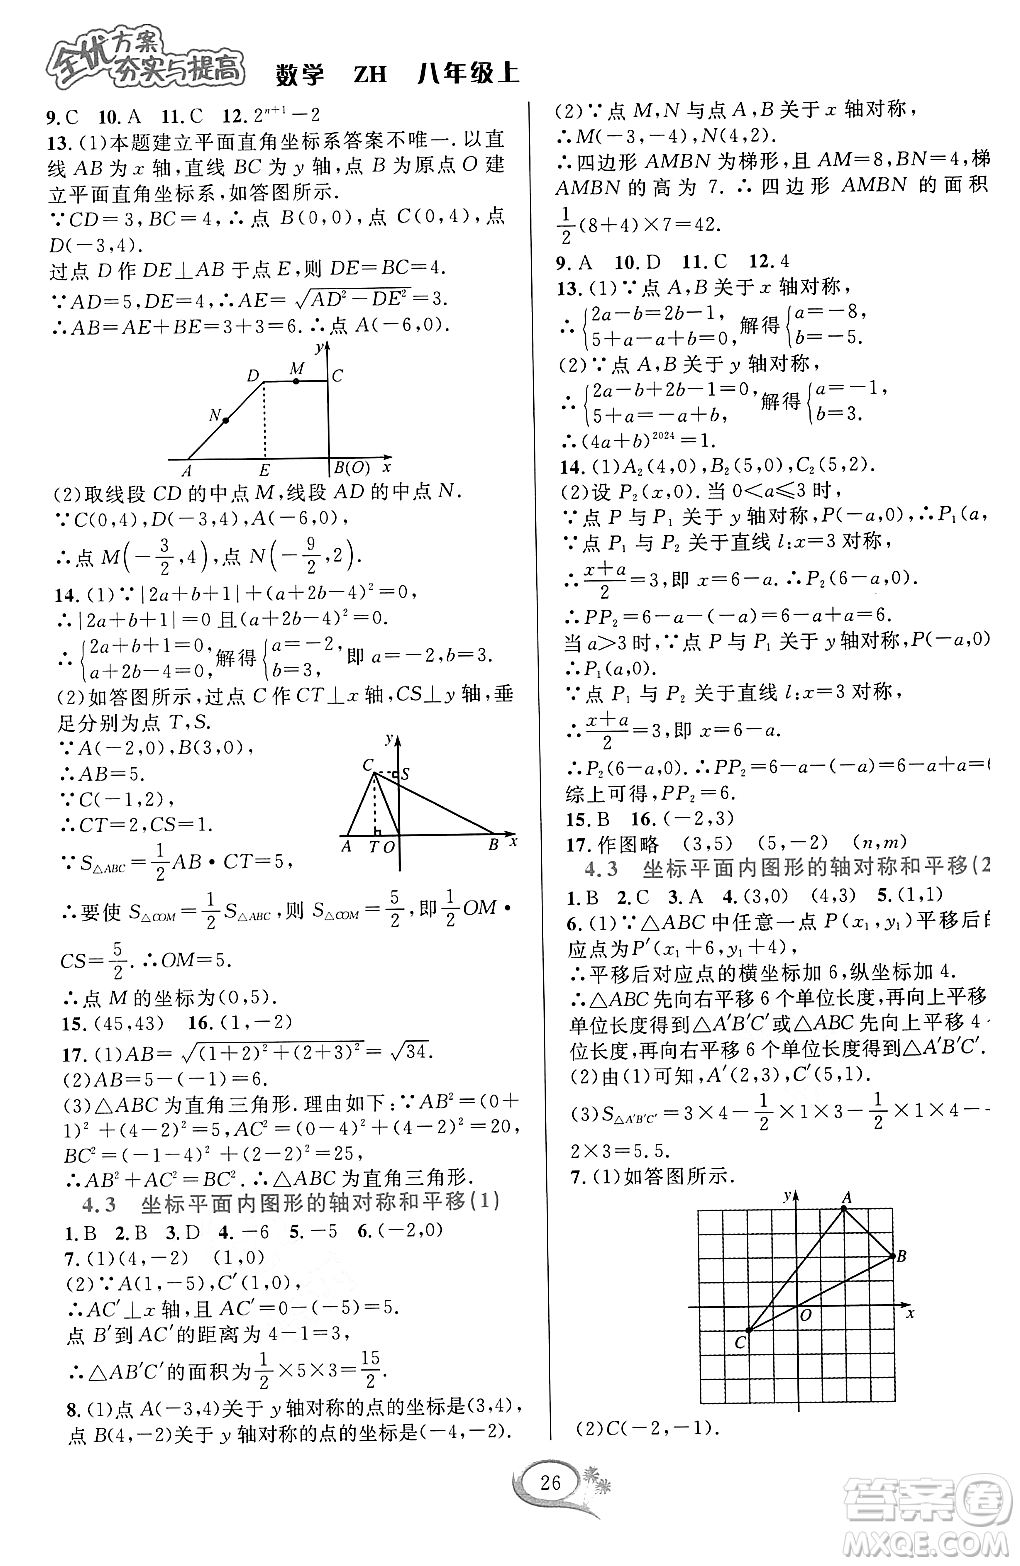 全优方案
夯实与提高 数学 ZH 八年级上
9.C 10.A 11.C 12.2ⁿ⁺¹－2
13.(1)本题建立平面直角坐标系答案不唯一.以直
线 AB 为 x 轴,直线 BC 为 y 轴,点 B 为原点 O 建
立平面直角坐标系,如答图所示.
∵CD＝3,BC＝4,∴点 B(0,0),点 C(0,4),点
D(－3,4).
过点 D 作 DE⊥AB 于点 E,则 DE＝BC＝4.
∵AD＝5,DE＝4,∴AE＝√(AD²－DE²)＝3.
∴AB＝AE＋BE＝3＋3＝6.∴点 A(－6,0).
y
D M C
N
A E B(O) x
(2)取线段 CD 的中点 M,线段 AD 的中点 N.
∵C(0,4),D(－3,4),A(－6,0),
∴点 M(－3/2,4),点 N(－9/2,2).
14.(1)∵|2a＋b＋1|＋(a＋2b－4)²＝0,
∴|2a＋b＋1|＝0 且(a＋2b－4)²＝0.
∴{2a＋b＝－1, a＋2b－4＝0, 解得{a＝－2, b＝3, 即 a＝－2,b＝3.
(2)如答图所示,过点 C 作 CT⊥x 轴,CS⊥y 轴,垂
足分别为点 T,S.
∵A(－2,0),B(3,0),
∴AB＝5.
∵C(－1,2),
∴CT＝2,CS＝1.
∵S△ABC＝1/2 AB·CT＝5,
y
C S
A T O B x
∴要使 S△COM＝1/2 S△ABC,则 S△COM＝5/2,即1/2 OM·
CS＝5/2.∴OM＝5.
∴点 M 的坐标为(0,5).
15.(45,43) 16.(1,－2)
17.(1)AB＝√((1＋2)²＋(2＋3)²)＝√34.
(2)AB＝5－(－1)＝6.
(3)△ABC 为直角三角形.理由如下:∵AB²＝(0＋
1)²＋(4－2)²＝5,AC²＝(4＋1)²＋(2－2)²＝25,
BC²＝(4－0)²＋(2－4)²＝20,
∴AB²＋BC²＝AC².∴△ABC 为直角三角形.
4.3 坐标平面内图形的轴对称和平移(1)
1.B 2.B 3.D 4.－6 5.－6 6.(－2,0)
7.(1)(4,－2) (1,0)
(2)∵A(1,－5),C′(1,0),
∴AC′⊥x 轴,且 AC′＝0－(－5)＝5.
点 B′到 AC′的距离为 4－1＝3,
∴△AB′C′的面积为1/2×5×3＝15/2.
8.(1)点 A(－3,4)关于 y 轴对称的点的坐标是(3,4),
点 B(4,－2)关于 y 轴对称的点的坐标是(－4,－2).
(2)∵点 M,N 与点 A,B 关于 x 轴对称,
∴M(－3,－4),N(4,2).
∴四边形 AMBN 为梯形,且 AM＝8,BN＝4,梯
AMBN 的高为 7.∴四边形 AMBN 的面积
1/2(8＋4)×7＝42.
9.A 10.D 11.C 12.4
13.(1)∵点 A,B 关于 x 轴对称,
∴{2a－b＝2b－1, 5＋a－a＋b＝0, 解得{a＝－8, b＝－5.
(2)∵点 A,B 关于 y 轴对称,
∴{2a－b＋2b－1＝0, 5＋a＝－a＋b, 解得{a＝－1, b＝3.
∴(4a＋b)²⁰²⁴＝1.
14.(1)A₂(4,0),B₂(5,0),C₂(5,2).
(2)设 P₂(x,0).当 0＜a≤3 时,
∵点 P 与 P₁ 关于 y 轴对称,P(－a,0),∴P₁(a,
∵点 P₁ 与 P₂ 关于直线 l:x＝3 对称,
∴(x＋a)/2＝3,即 x＝6－a.∴P₂(6－a,0).
∴PP₂＝6－a－(－a)＝6－a＋a＝6.
当 a＞3 时,∵点 P 与 P₁ 关于 y 轴对称,P(－a,0)
∴P₁(a,0).
∵点 P₁ 与 P₂ 关于直线 l:x＝3 对称,
∴(x＋a)/2＝3,即 x＝6－a.
∴P₂(6－a,0).∴PP₂＝6－a－(－a)＝6－a＋a＝6
综上可得,PP₂＝6.
15.B 16.(－2,3)
17.作图略 (3,5) (5,－2) (n,m)
4.3 坐标平面内图形的轴对称和平移(2
1.B 2.C 3.A 4.(3,0) (4,3) 5.(1,1)
6.(1)∵△ABC 中任意一点 P(x₁,y₁)平移后的
应点为P′(x₁＋6,y₁＋4),
∴平移后对应点的横坐标加 6,纵坐标加 4.
∴△ABC 先向右平移 6 个单位长度,再向上平移
单位长度得到△A′B′C′或△ABC 先向上平移 4
位长度,再向右平移 6 个单位长度得到△A′B′C′.
(2)由(1)可知,A′(2,3),B′(1,0),C′(5,1).
(3)S△A′B′C′＝3×4－1/2×1×3－1/2×1×4－
2×3＝5.5.
7.(1)如答图所示.
y
A
B
O x
C
(2)C(－2,－1).
26
答案圈
MXQE.COM